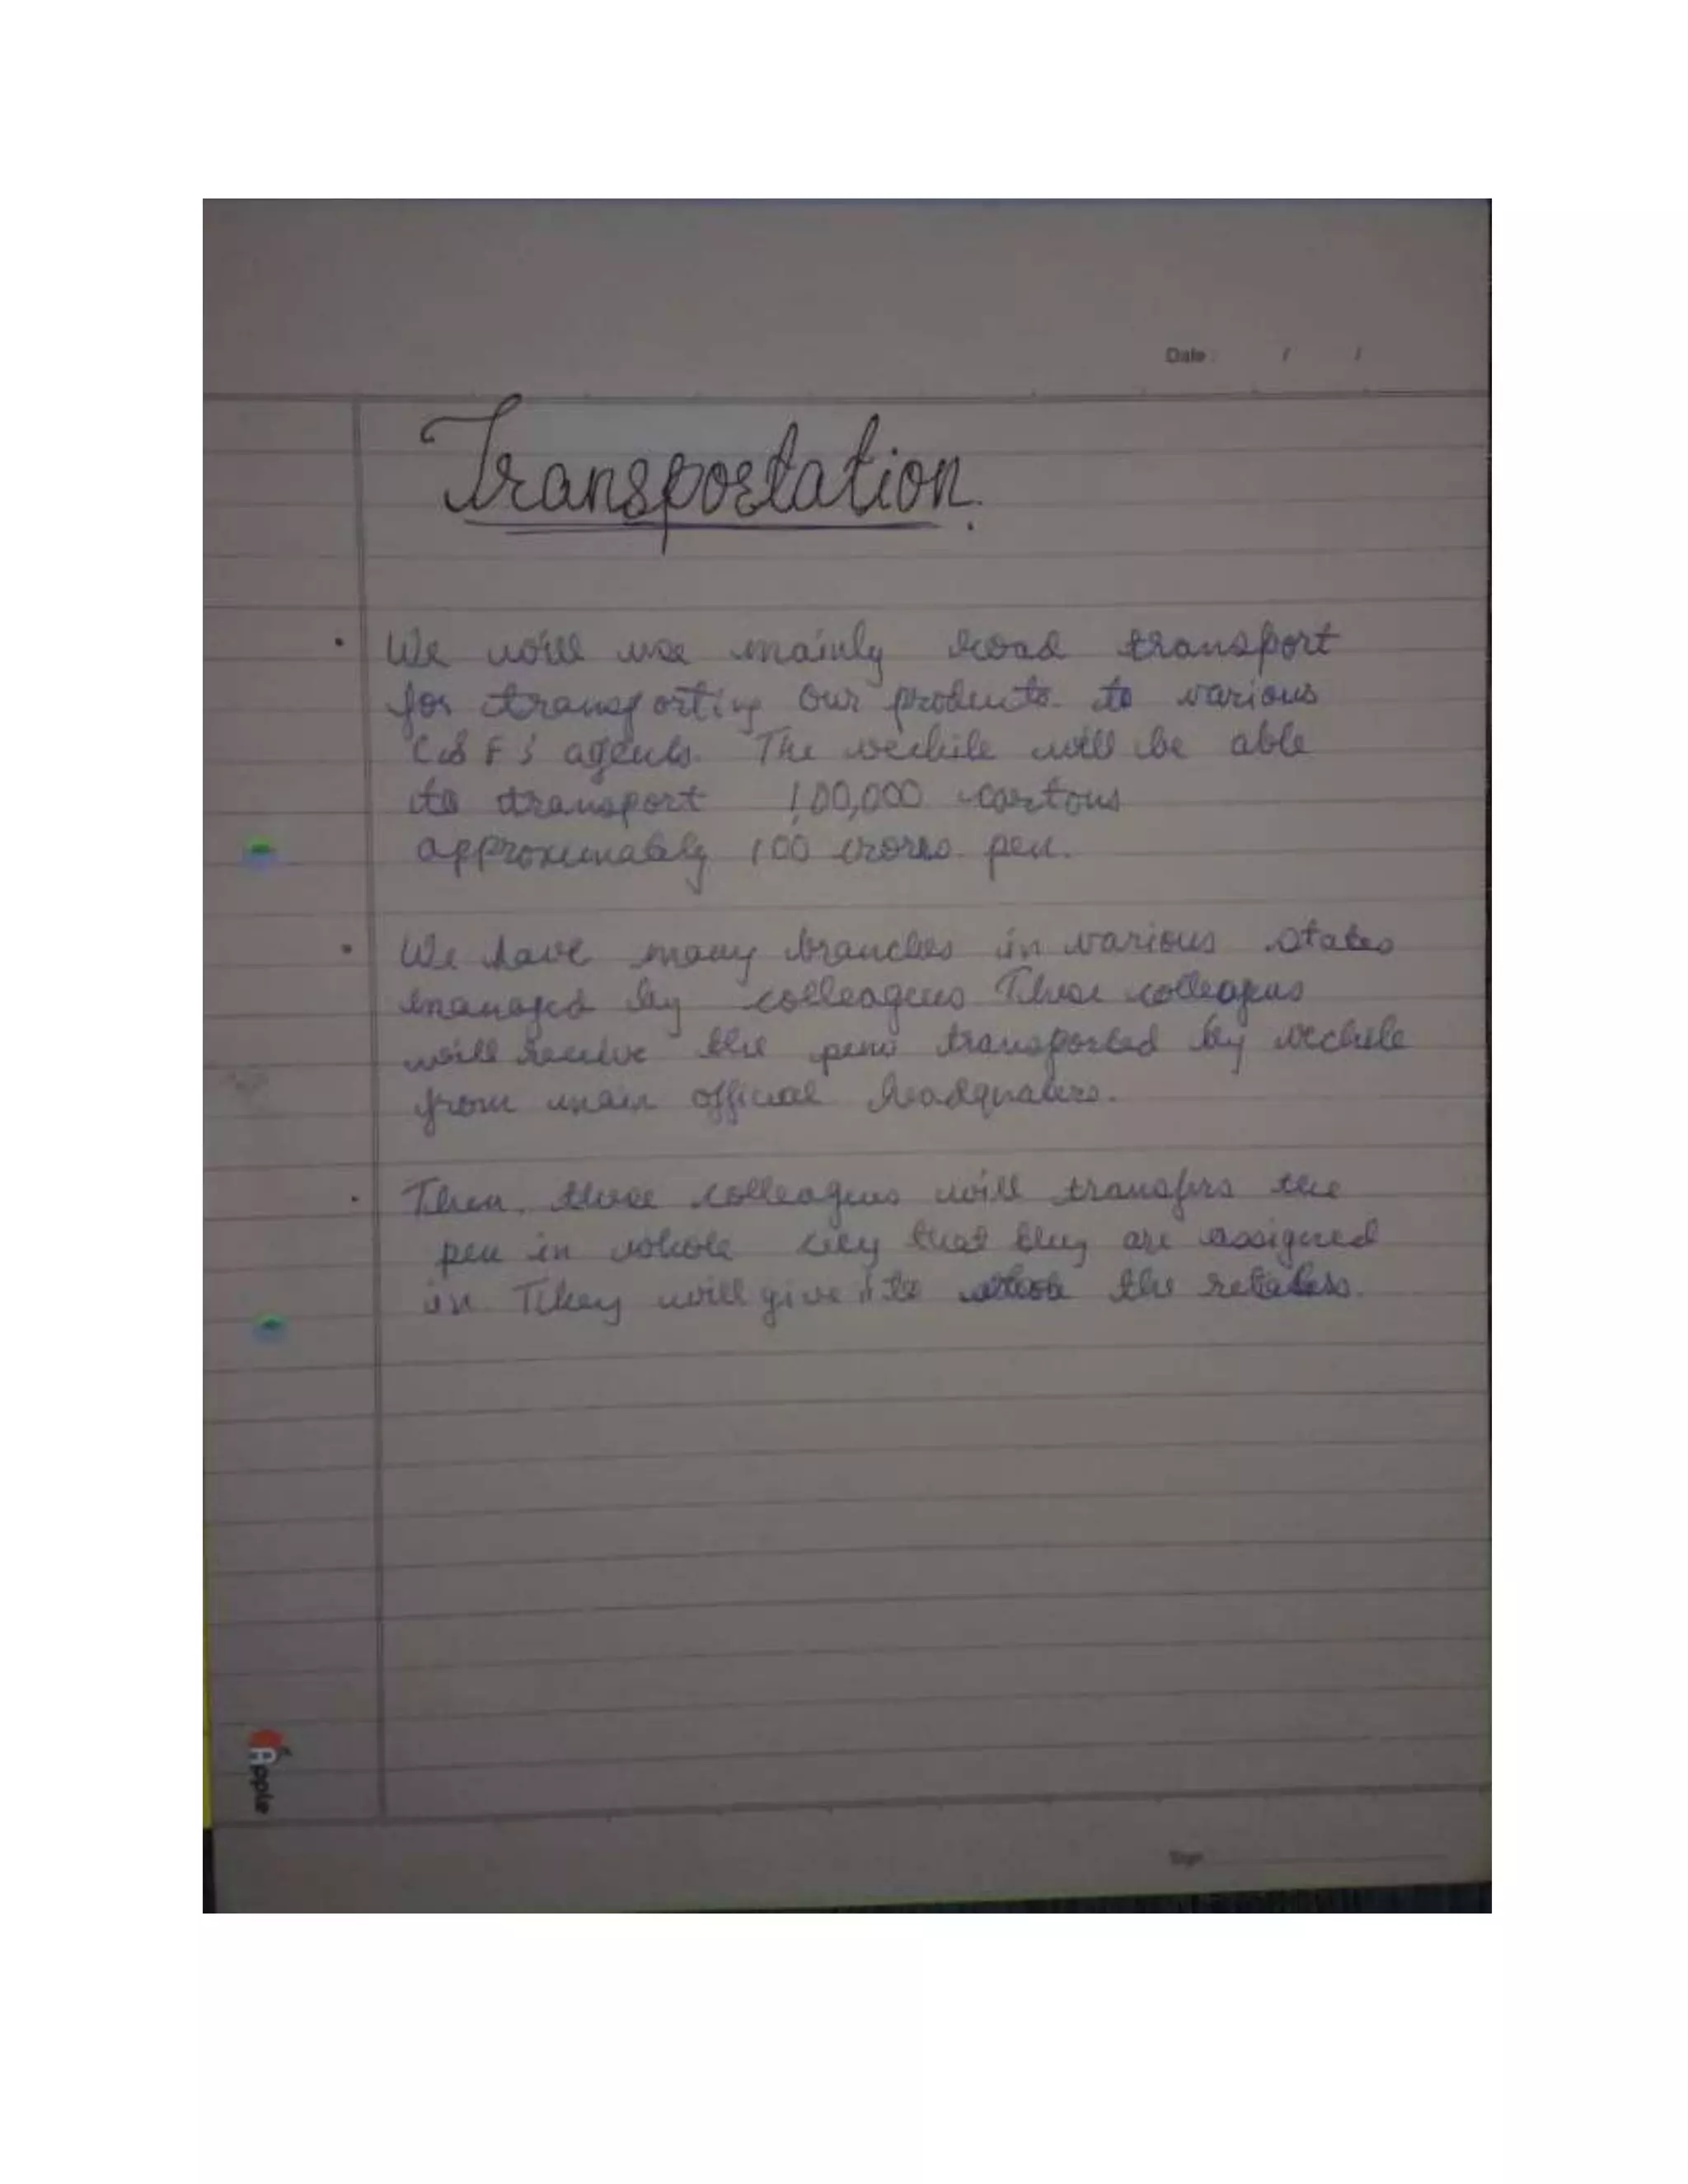 Date : / /
Transportation.
• We will use mainly road transport
for transporting our products to various
C&F's agents. The vechile will be able
to transport 1,00,000 cartons
approximately 100 crores pen.
• We have many branches in various states
managed by colleagues These colleagues
will receive the pens transported by vechile
from main official headquaters.
• Then, these colleagues will transfers the
pen in whole city that they are assigned
in They will give it to the retailers.
Apple
Sign